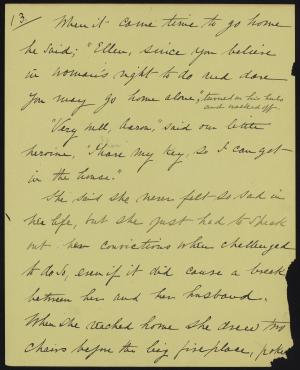 13/
When it came time to go home
he said; "Ellen, since you believe
in woman's right to do and dare
you may go home alone", turned on his heels
and walked off
"Very well, Aaron," said our little
heroine, "I have my key, so I can get
in the house."
She said she never felt so sad in
her life, but she just had to speak
out her convictions when challenged
to do so, even if it did cause a break
between her and her husband.
When she reached home she drew two
chairs before the big fireplace, poke